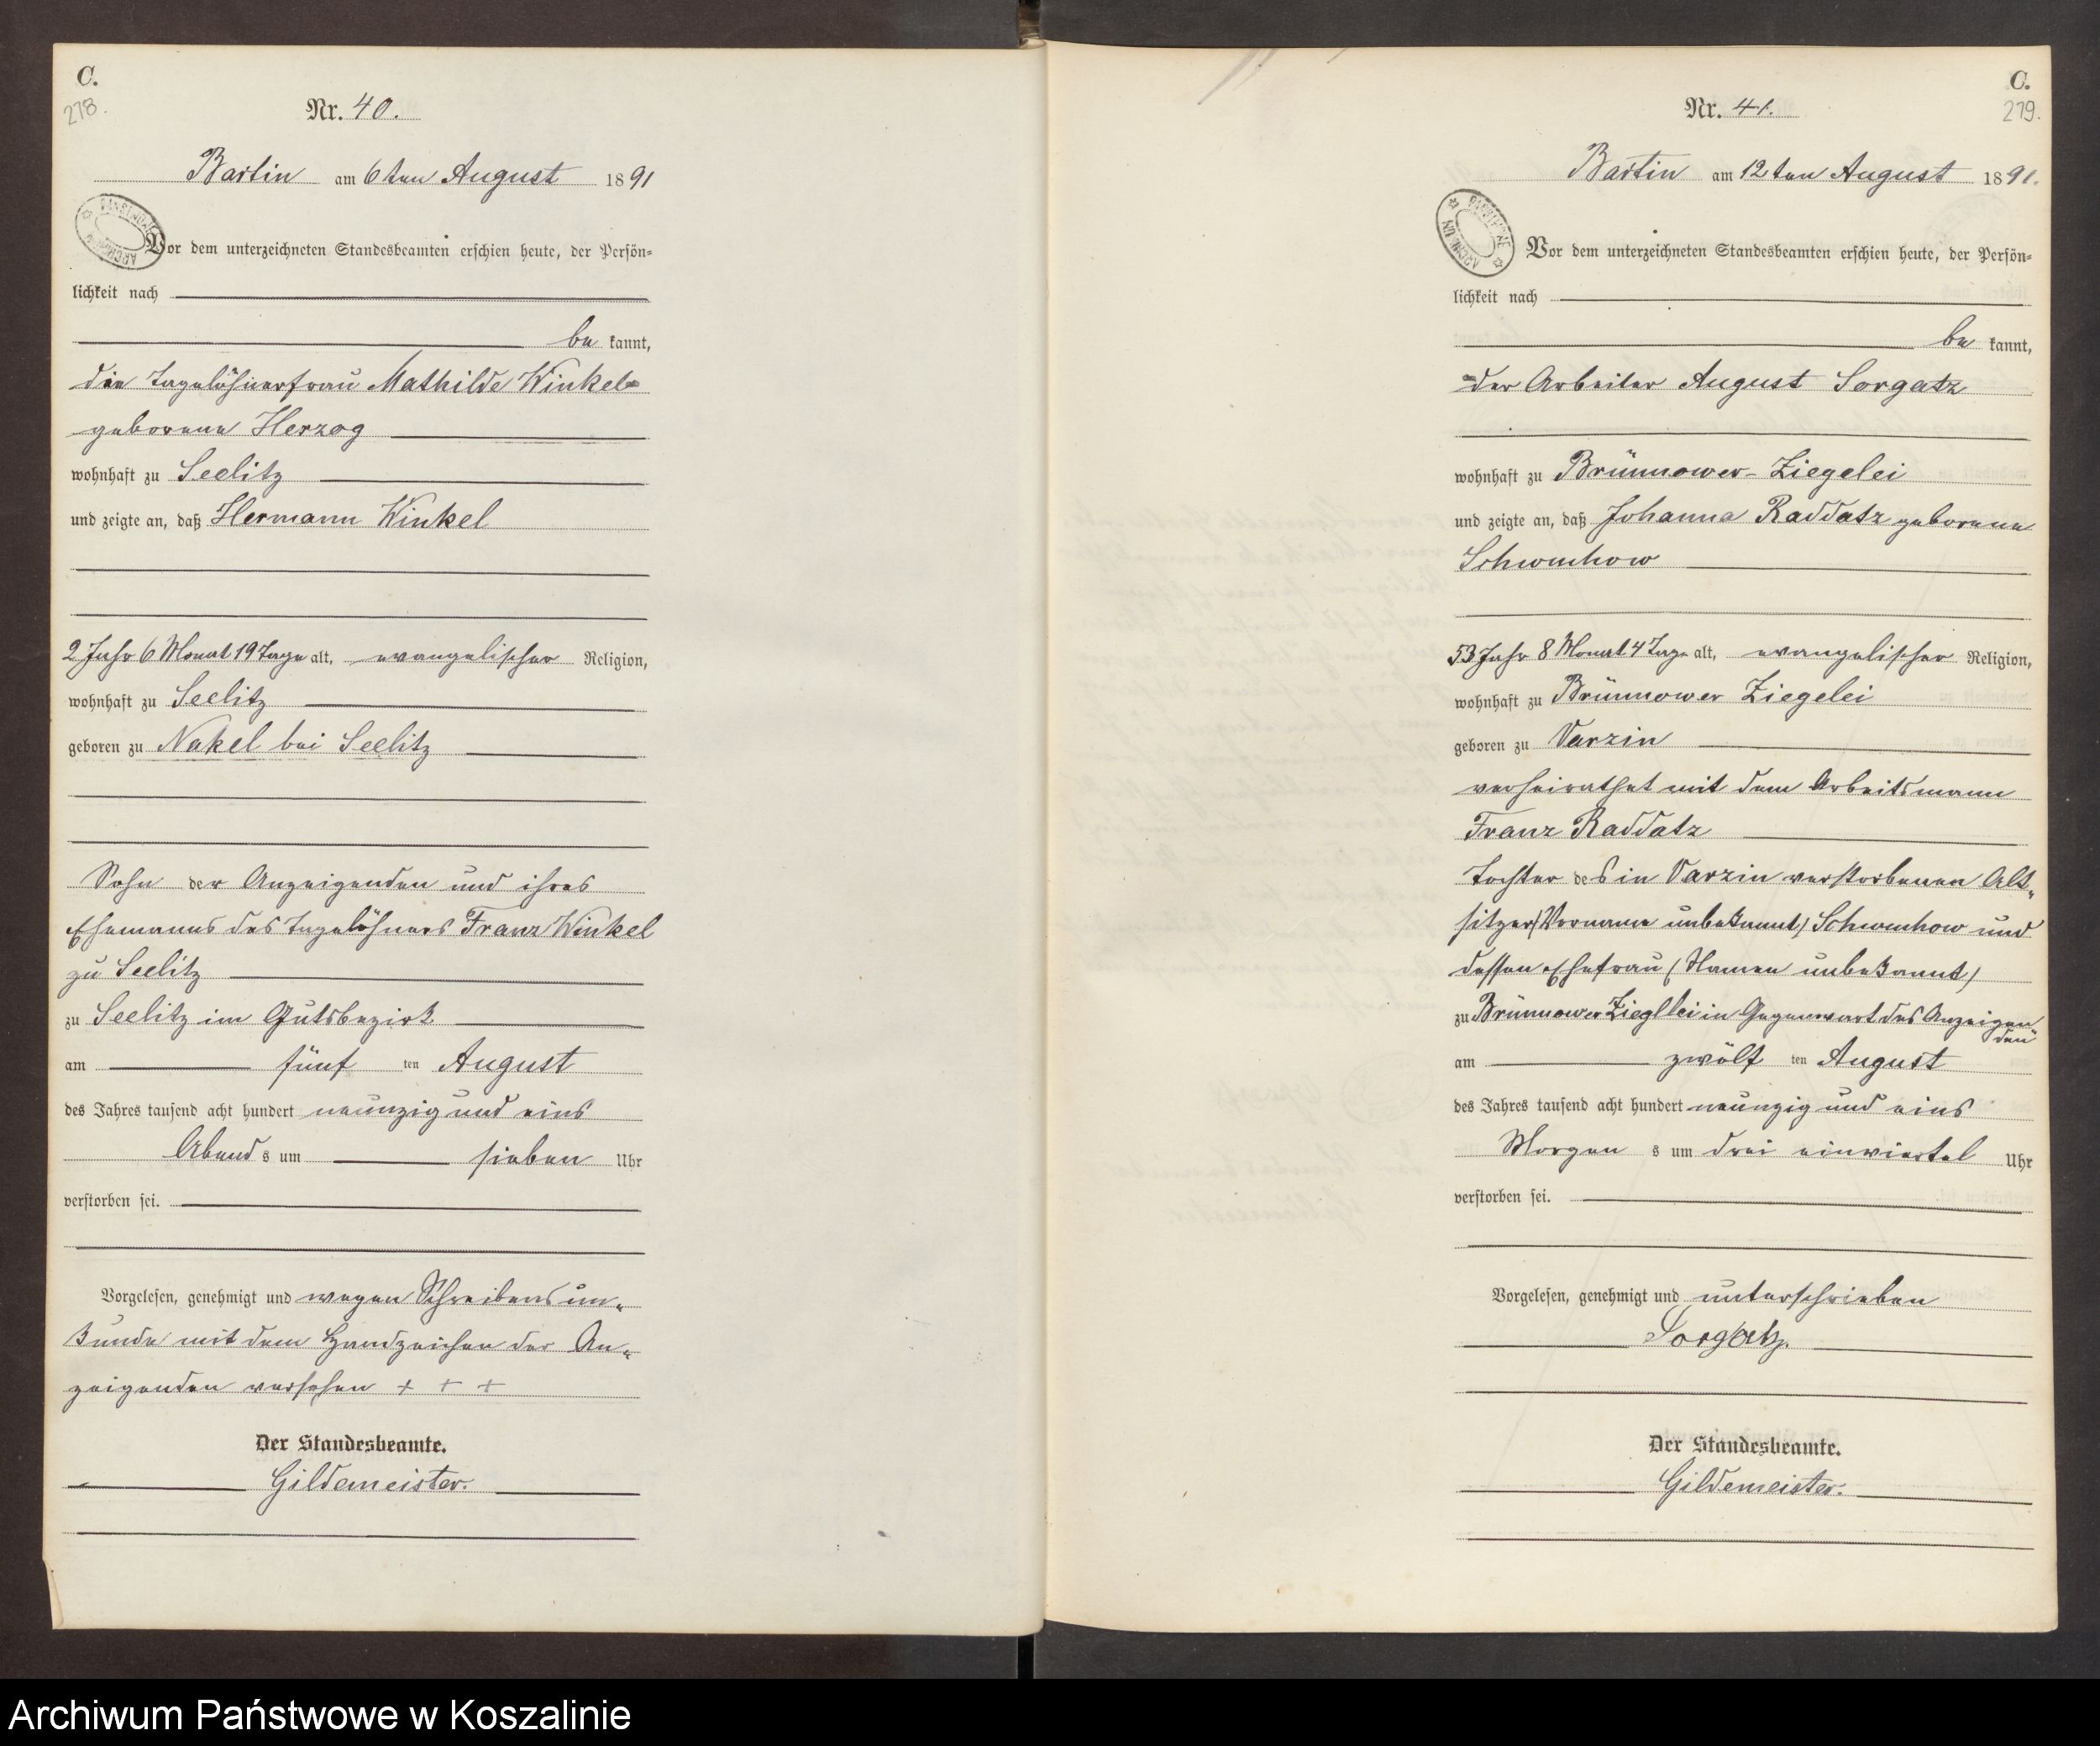 C.
278.
Nr. 40.
Bartin am 6ten August 1891
Vor dem unterzeichneten Standesbeamten erschien heute, der Persön=
lichkeit nach
be kannt,
die Tagelöhnerfrau Mathilde Winkel
geborene Herzog
wohnhaft zu Seelitz
und zeigte an, daß Hermann Winkel
2 Jahr 6 Monat 19 Tage alt, evangelischer Religion,
wohnhaft zu Seelitz
geboren zu Nakel bei Seelitz
Sohn der Anzeigenden und ihres
Ehemanns des Tagelöhners Franz Winkel
zu Seelitz
zu Seelitz im Gutsbezirk
am fünf ten August
des Jahres tausend acht hundert neunzig und eins
Abend s um sieben Uhr
verstorben sei.
Vorgelesen, genehmigt und wegen Schreibensun„
kunde mit dem Handzeichen der An„
zeigenden versehen + + +
Der Standesbeamte.
Gildemeister.
C.
279.
Nr. 41.
Bartin am 12ten August 1891.
Vor dem unterzeichneten Standesbeamten erschien heute, der Persön=
lichkeit nach
be kannt,
der Arbeiter August Sorgatz
wohnhaft zu Brünnower-Ziegelei
und zeigte an, daß Johanna Raddatz geborene
Schwuchow
53 Jahr 8 Monat 4 Tage alt, evangelischer Religion,
wohnhaft zu Brünnower Ziegelei
geboren zu Varzin
verheirathet mit dem Arbeitsmann
Franz Raddatz
Tochter des in Varzin verstorbenen Alt„
sitzer (Vorname unbekannt) Schwuchow und
dessen Ehefrau (Namen unbekannt)
zu Brünnower Zieglei in Gegenwart des Anzeigen
den
am zwölf ten August
des Jahres tausend acht hundert neunzig und eins
Morgen s um drei einviertel Uhr
verstorben sei.
Vorgelesen, genehmigt und unterschrieben
Sorgatz.
Der Standesbeamte.
Gildemeister.
Archiwum Państwowe w Koszalinie